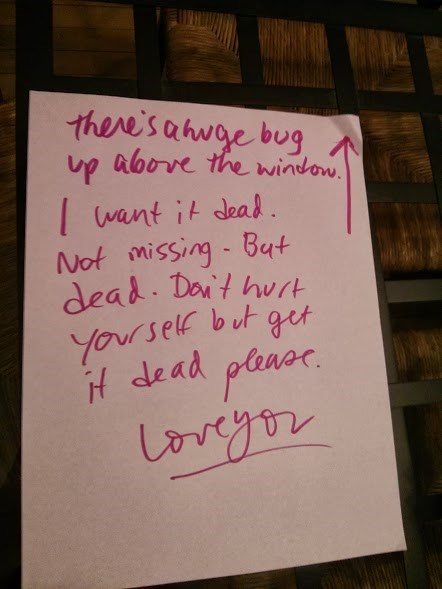 there's a huge bug
up above the window.
I want it dead.
Not missing - But
dead. Don't hurt
yourself but get
it dead please.
Love you